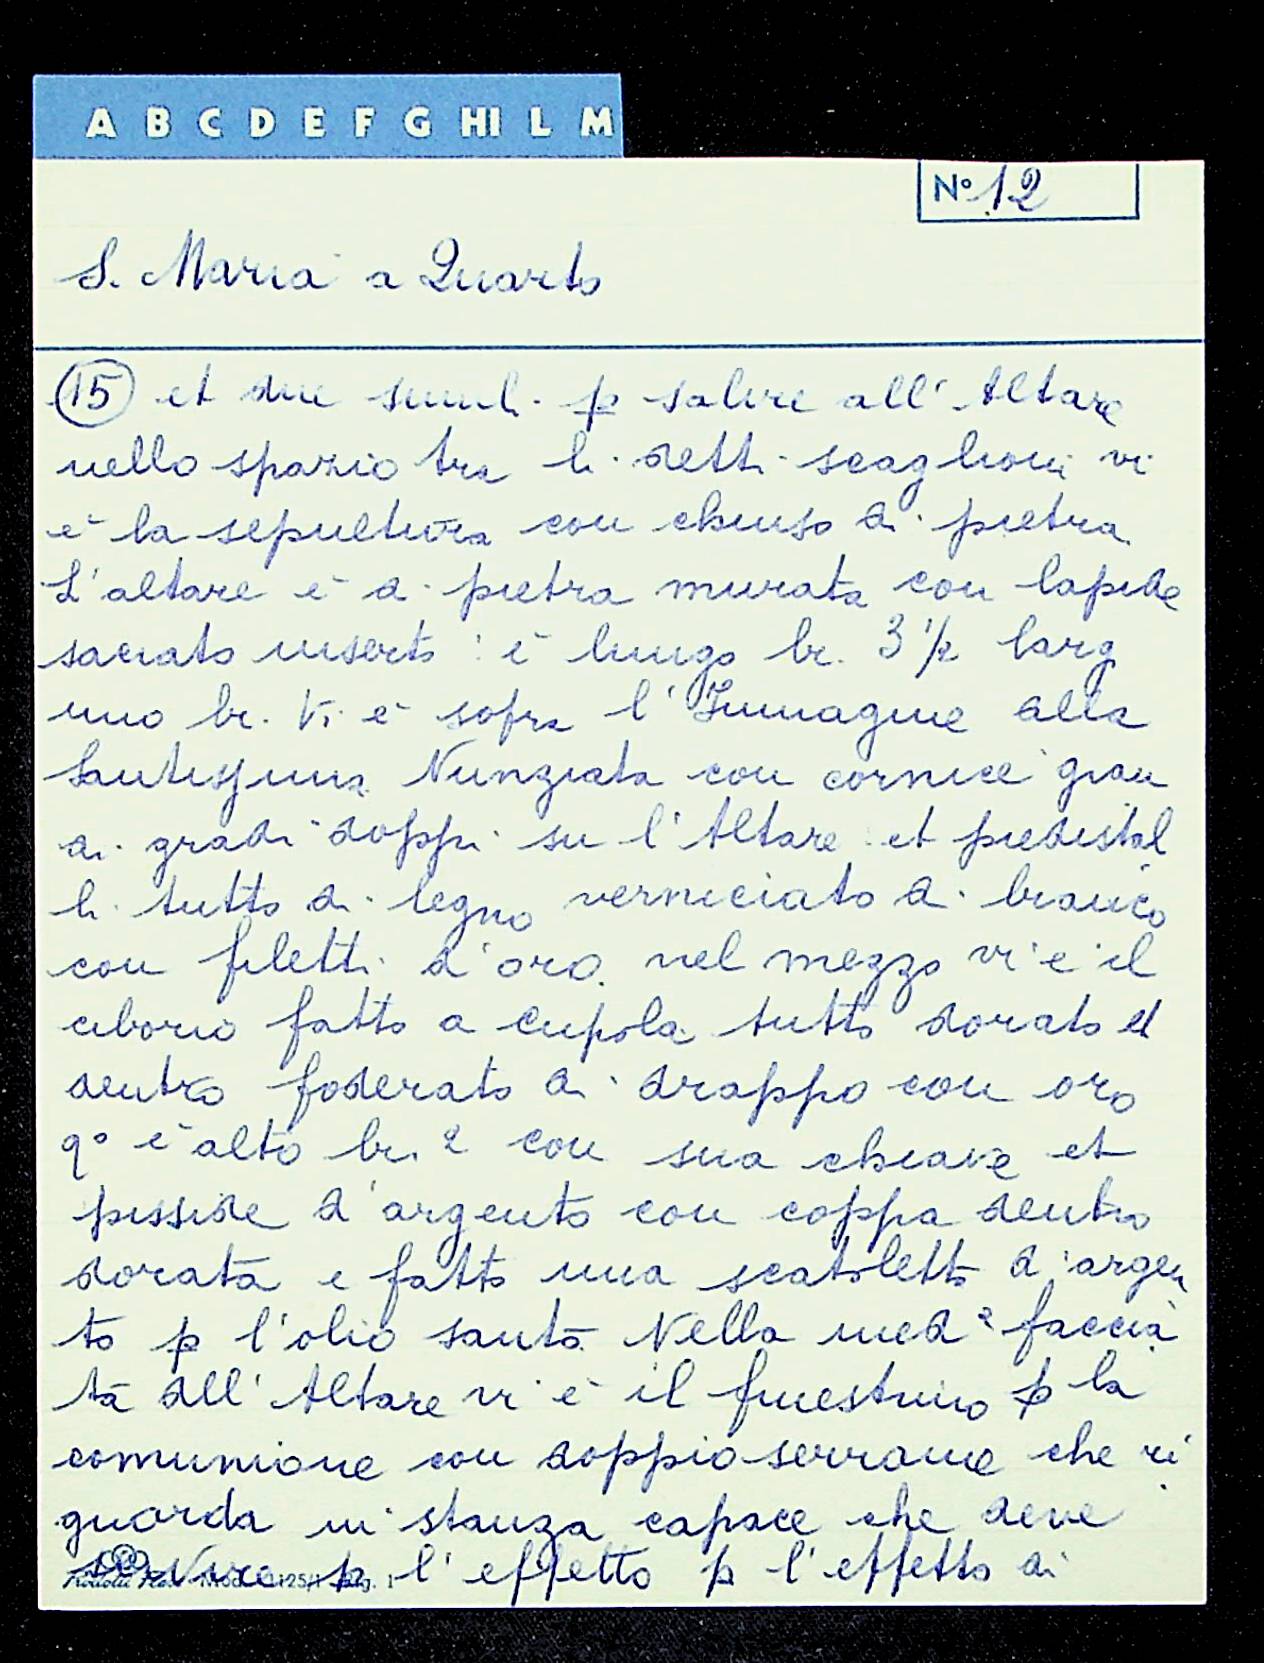 A B C D E F G HI L M
Nº 12
S. Maria a Quarto
15 et due simili. p salire all'Altare
nello spazio tra li detti scaglioni vi
è la sepultura con chiuso di pietra
L'altare è di pietra murata con lapide
sacrato inserto: è lungo br. 3 1/2 larg
uno br. Vi è sopra l'Immagine alla
Santissima Nunziata con cornice gran
di gradi doppi su l'Altare et piedistal
li tutto di legno verniciato di bianco
con filetti d'oro. nel mezzo vi è il
ciborio fatto a cupola tutto dorato et
dentro foderato di drappo con oro
qº è alto br. 2 con sua chiave et
pisside d'argento con coppa dentro
dorata e fatto una scatoletta d'argen
to p l'olio santo. Nella med ª faccia
ta dell'Altare vi è il finestrino p la
comunione con doppio serrame che ri
guarda in stanza capace che deve
servire p l'effetto p l'effetto di